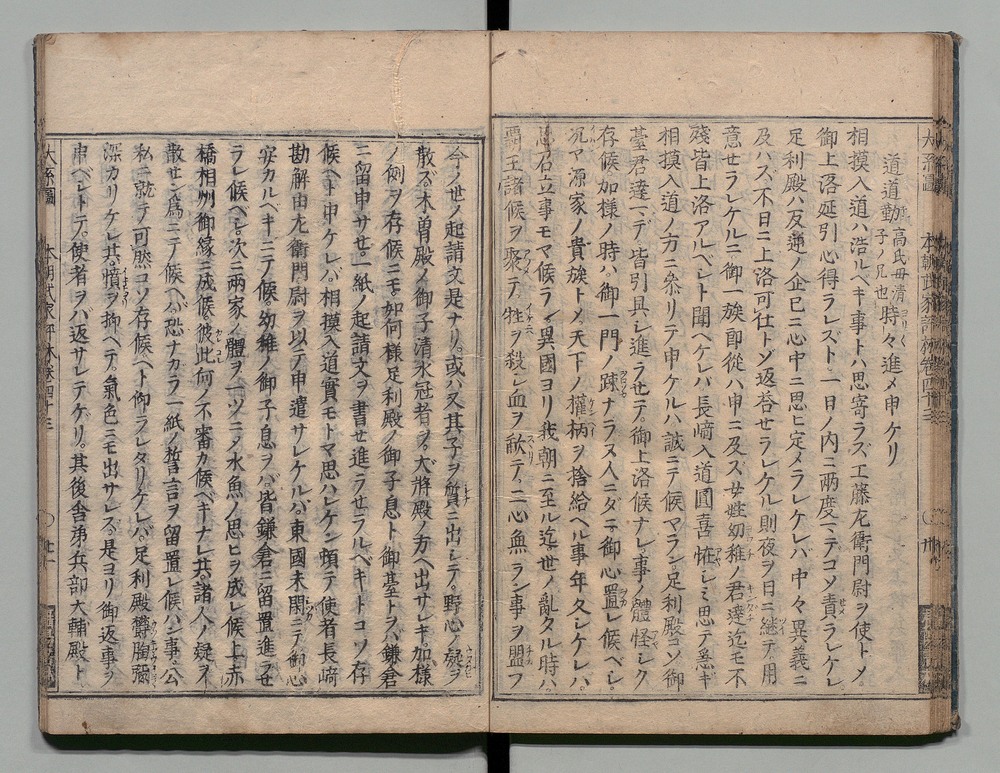 道道勤 高氏母清子ノ兄也 時々進メ申ケリ
相摸入道ハ浩ルベキ事トハ思寄ラズ工藤左衞門尉ヲ使トメ
御上洛延引心得ラレズト一日ノ内ニ兩度マデコソ責ラレケレ
足利殿ハ反逆ノ企已ニ心中ニ思ヒ定メラレケレバ中々異義ニ
及ハズ不日ニ上洛可仕トゾ返荅せラレケル則夜ヲ日ニ継テ用
意せラレケルニ御一族郎從ハ申ニ及ズ女姓幼稚ノ君達迄モ不
殘皆上洛アルベシト聞ヘケレバ長﨑入道圓喜恠シミ思テ急ギ
相摸入道ノ方ニ叅リテ申ケルハ誠ニテ候ヤラン足利殿コソ御
臺君達マデ皆引具レ進ラせテ御上洛候ナレ事ノ體怪シク
存候加樣ノ時ハ御一門ノ疎ナラヌ人ニダニモ御心置レ候ベシ
况ヤ源家ノ貴族トメ天下ノ權柄ヲ捨給ヘル事年久シケレハ
思召立事モヤ候ラン異國ヨリ我朝ニ至ル迄世ノ亂タル時ハ
覇王諸候ヲ聚テ牲ヲ殺シ血ヲ歃テ二心無ラン事ヲ盟フ
今ノ世ノ起請文是ナリ或ハ又其子ヲ質ニ出シテ野心ノ疑ヲ
散ズ木曽殿ノ御子清水冠者ヲ大將殿ノ方ヘ出サレキ加樣
ノ例ヲ存候ニモ如何樣足利殿ノ御子息ト御臺トヲハ鎌倉
ニ留申サせ一紙ノ起請文ヲ書せ進ラせラルベキトコソ存
候ヘト申ケレバ相摸入道實モトヤ思ハレケン頓テ使者長﨑
勘解由左衞門尉ヲ以テ申遣サレケルハ東國未閑ニテ御心
安カルベキニテ候幼稚ノ御子息ヲバ皆鎌倉ニ留置進ラせ
ラレ候ベシ次ニ兩家ノ體ヲ一ツニメ水魚ノ思ヒヲ成レ候上赤
橋相州御縁ニ成候彼此何ノ不審カ候ベキナレ共諸人ノ疑ヲ
散せン爲ニテ候ヘバ恐ナカラ一紙ノ誓言ヲ留置レ候ハン事公
私ニ就テ可然コソ存候ヘト仰ラレタリケレバ足利殿欝胸彌
深カリケレ共憤ヲ抑ヘテ氣色ニモ出サレズ是ヨリ御返事ヲ
申ベシトテ使者ヲハ返サレテケリ其後舎弟兵部大輔殿ト